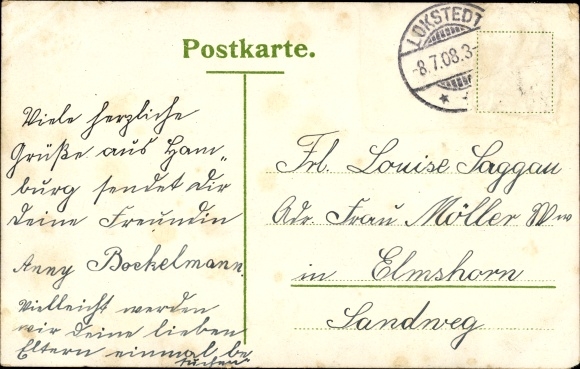 Postkarte.
LOKSTEDT
-8.7.08.3-
Viele herzliche
Grüße aus Ham„
burg sendet Dir
Deine Freundin
Anny Bockelmann.
Vielleicht werden
wir Deine lieben
Eltern einmal be
suchen
Frl. Louise Saggau
Adr. Frau Möller Ww
in Elmshorn
Sandweg